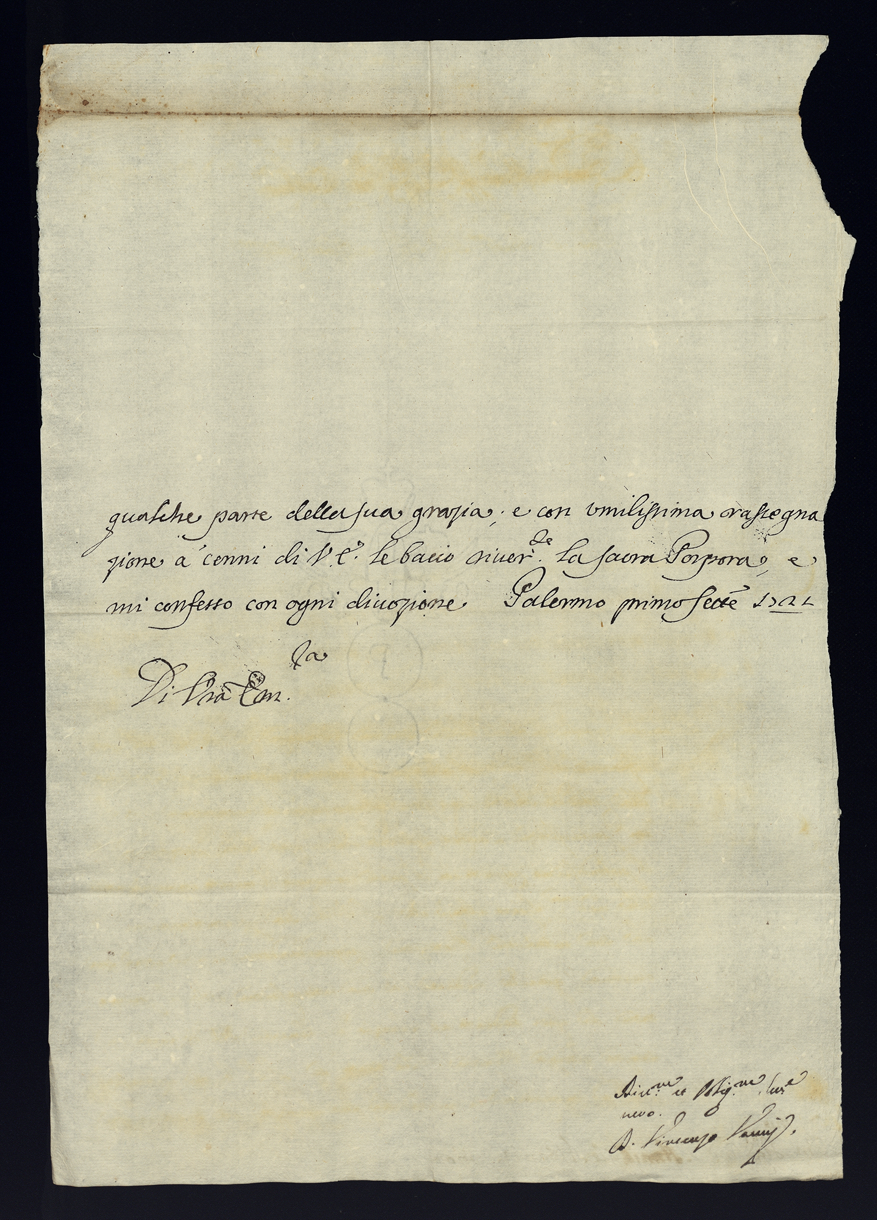 qualche parte della sua grazia; e con umilissima rassegna
zione a' cenni di V. E. le bacio river.te la sacra Porpora, e
mi confesso con ogni divozione Palermo primo 7bre 1721
Di Vra Em.za
et Oblig.mo
D. Vincenzo